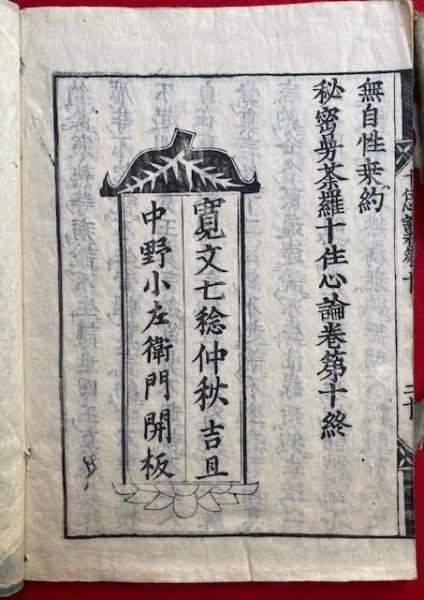 無自性乗約
秘密曼荼羅十住心論巻第十終
寛文七稔仲秋吉旦
中野小左衛門開板